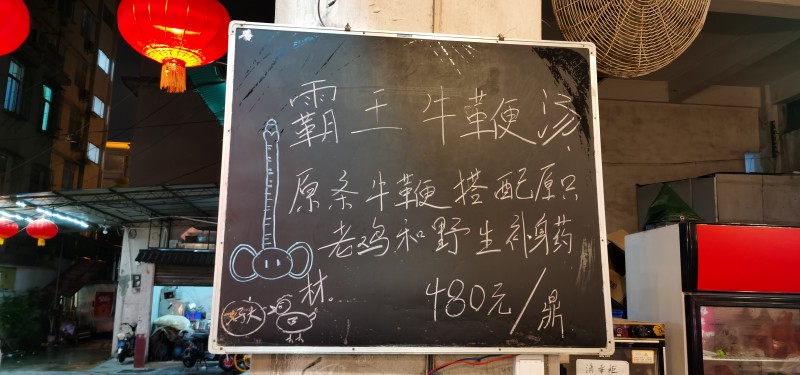 霸王牛鞭汤
原条牛鞭搭配原只
老鸡和野生补身药
材。
480元/鼎
好大